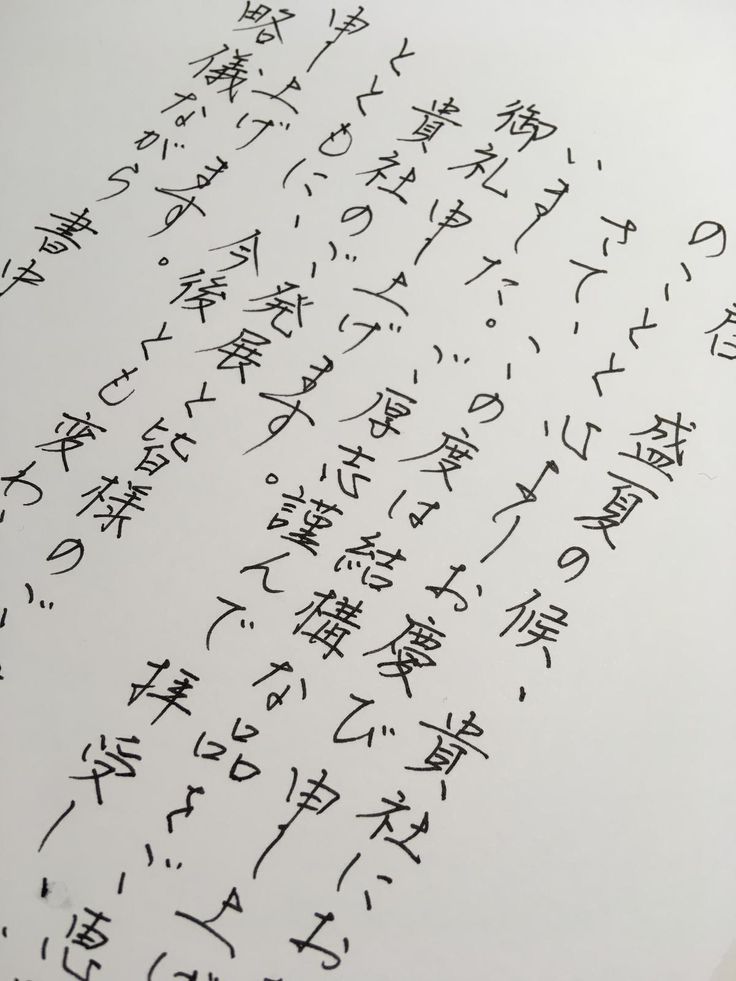 盛夏の候、貴社にお
のことと心よりお慶び申し上げ
さて、この度は結構な品をご恵
いました。ご厚志謹んで拝受し、
御礼申し上げます。
貴社のご発展と皆様のご
とともに、今後とも変わ
申し上げます。
略儀ながら書中